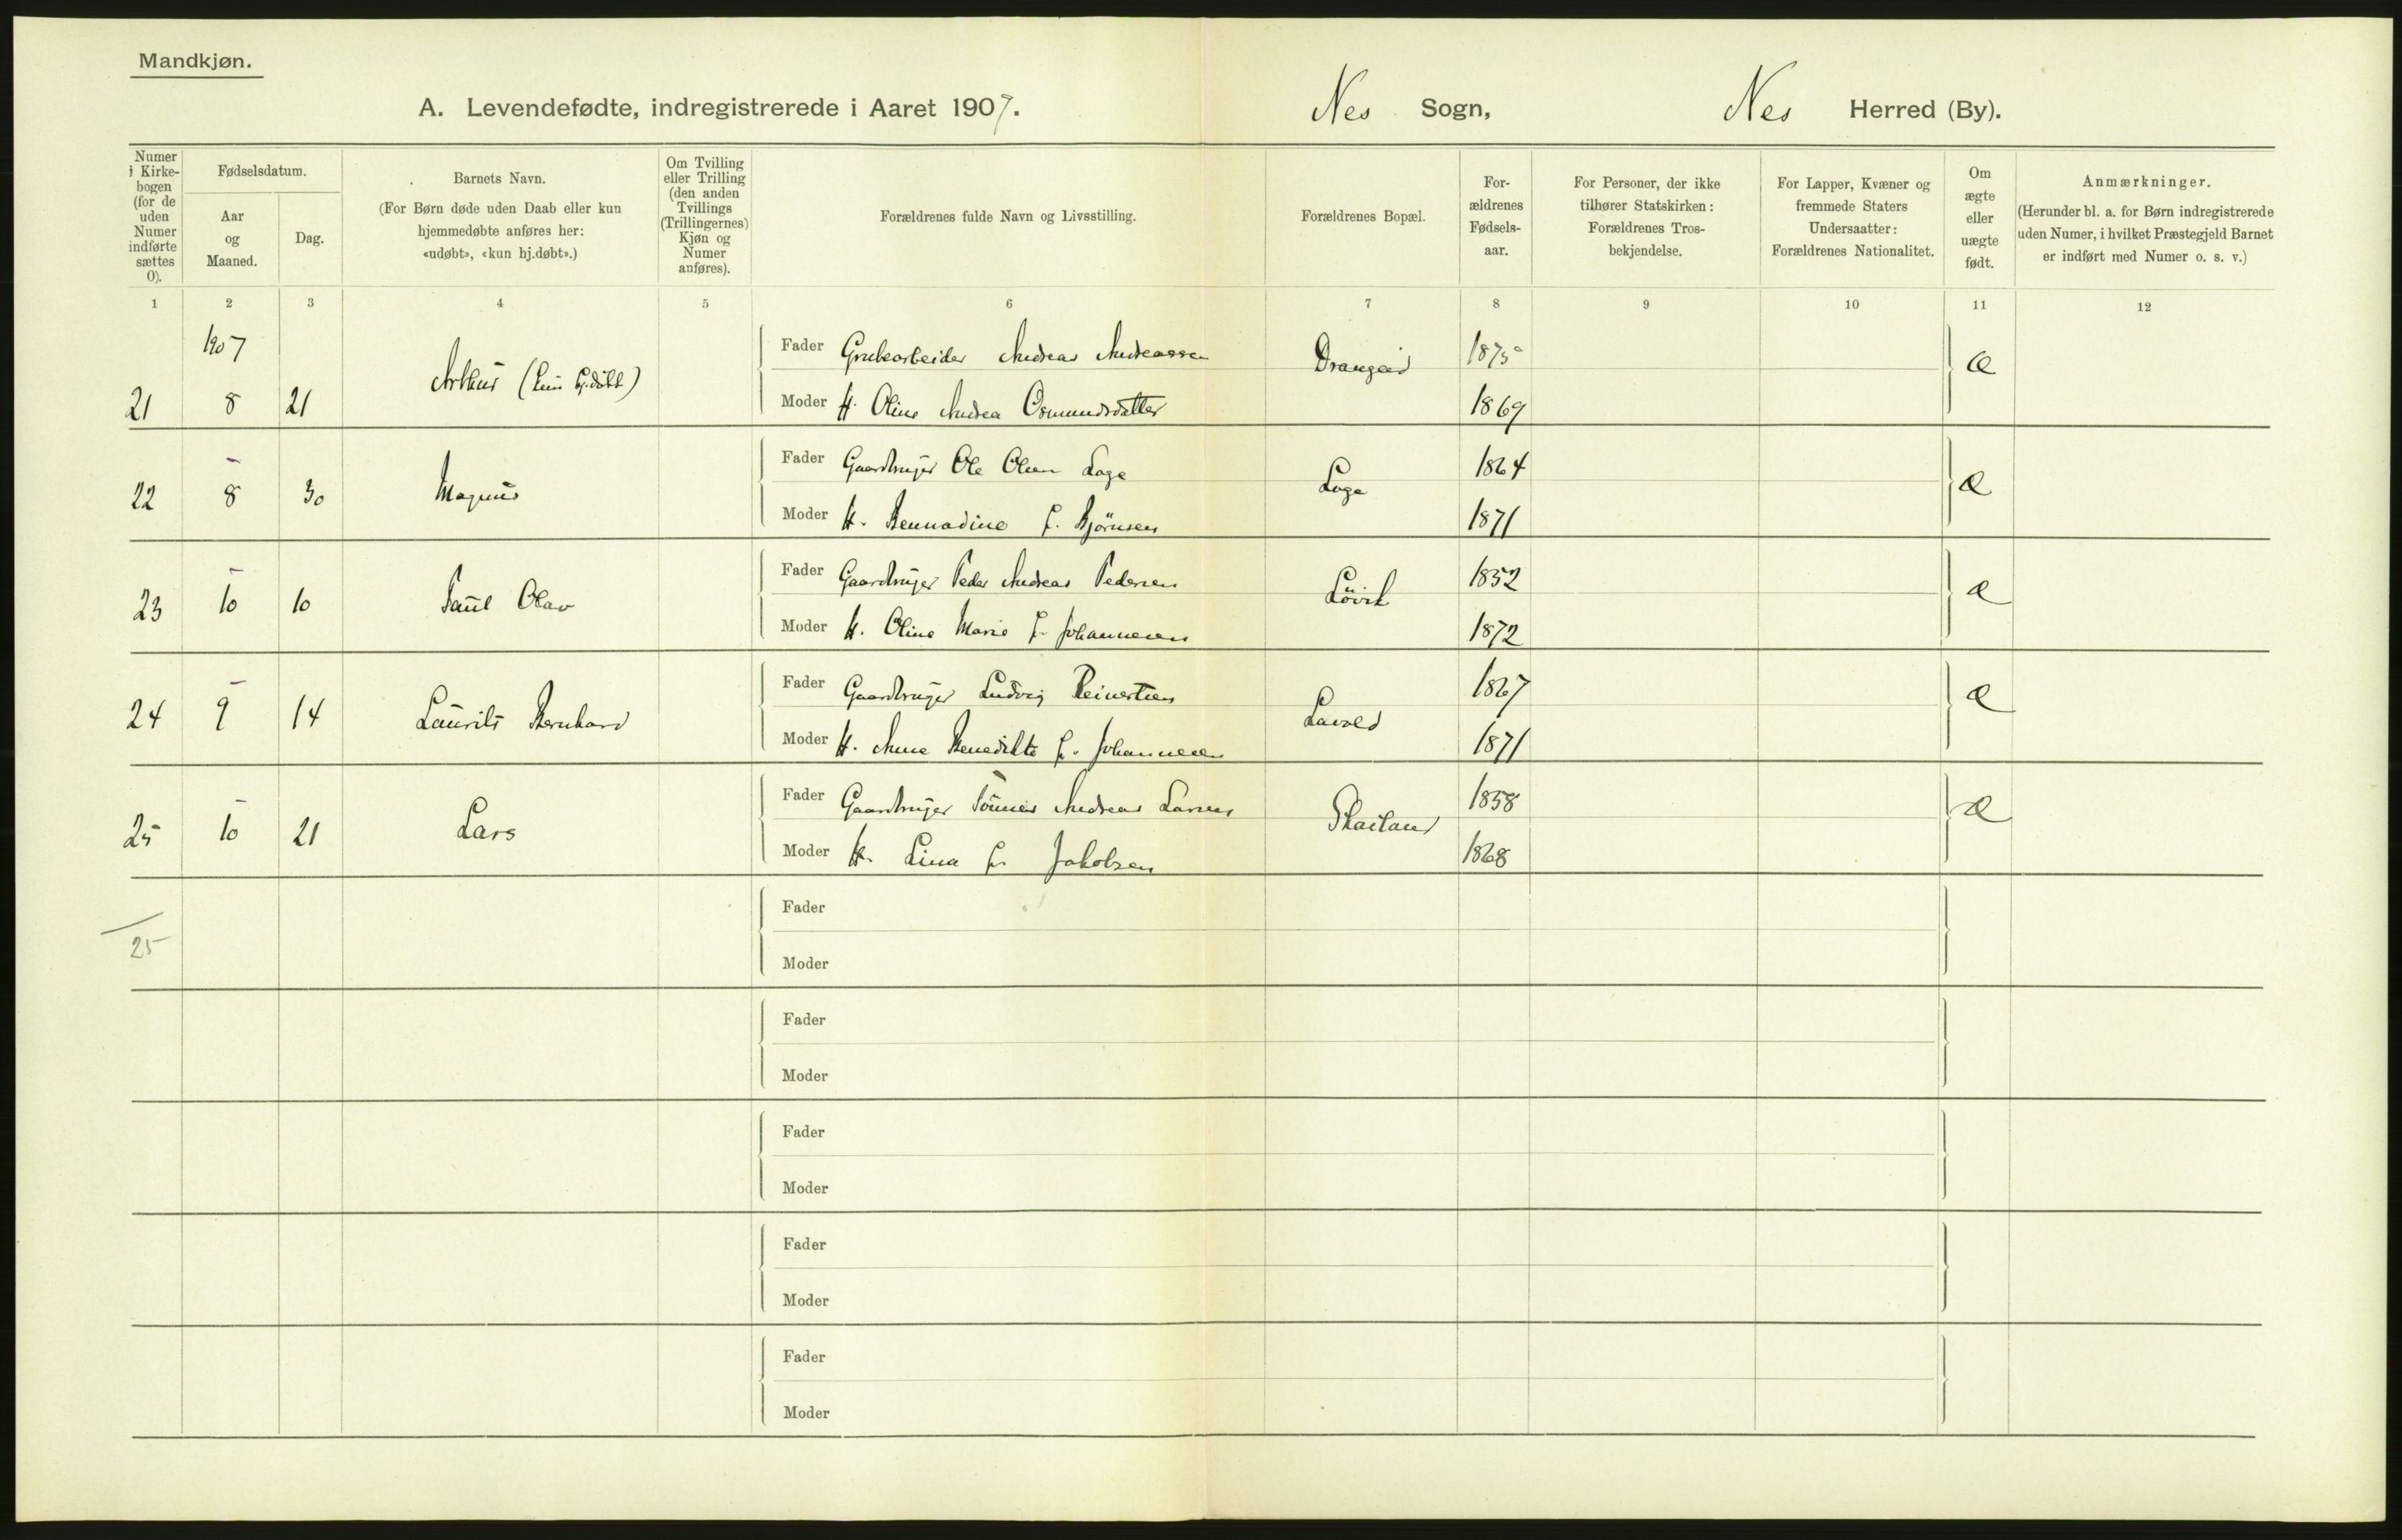 Mandkjøn.
A. Levendefødte, indregistrerede i Aaret 1907. Nes Sogn, Nes Herred (By).
Numer i Kirkebogen (for de uden Numer indførte sættes 0).
Fødselsdatum.
Aar og Maaned.
Dag.
Barnets Navn.
(For Børn døde uden Daab eller kun hjemmedøbte anføres her: «udøbt», «kun hj.døbt».)
Om Tvilling eller Trilling (den anden Tvillings (Trillingernes) Kjøn og Numer anføres).
Forældrenes fulde Navn og Livsstilling.
Forældrenes Bopæl.
Forældrenes Fødselsaar.
For Personer, der ikke tilhører Statskirken: Forældrenes Trosbekjendelse.
For Lapper, Kvæner og fremmede Staters Undersaatter: Forældrenes Nationalitet.
Om ægte eller uægte født.
Anmærkninger.
(Herunder bl. a. for Børn indregistrerede uden Numer, i hvilket Præstegjeld Barnet er indført med Numer o. s. v.)
1 2 3 4 5 6 7 8 9 10 11 12
1907
21 8 21 Arthur (kun hj.døbt)
Fader Grubearbeider Andreas Andreassen Drangeid 1875 Æ
Moder H. Oline Andrea Osmundsdatter 1869
22 8 30 Magnus
Fader Gaardbruger Ole Olsen Loge Loge 1864 Æ
Moder H. Bernadine f. Bjørnsen 1871
23 10 10 Paul Olav
Fader Gaardbruger Peder Andreas Pedersen Lövik 1852 Æ
Moder H. Oline Marie f. Johannesen 1872
24 9 14 Laurits Bernhard
Fader Gaardbruger Ludvig Reinertsen 1867 Æ
Moder H. Anne Benedikte f. Johannesen 1871
25 10 21 Lars
Fader Gaardbruger Tönnes Andreas Larsen Skailand 1858 Æ
Moder H. Lina f. Jakobsen 1868
25
Fader
Moder
Fader
Moder
Fader
Moder
Fader
Moder
Fader
Moder